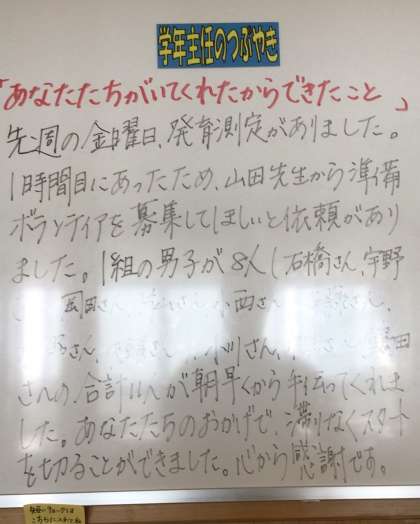 学年主任のつぶやき
「あなたたちがいてくれたからできたこと」
先週の金曜日、発育測定がありました。
1時間目にあったため、山田先生から準備
ボランティアを募集してほしいと依頼があり
ました。1組の男子が8人(石橋さん、宇野
岡田さん、小西さん、
さん、小川さん、田
さんの合計 人が朝早くから手伝ってくれま
した。あなたたちのおかげで、滞りなくスタート
を切ることができました。心から感謝です。